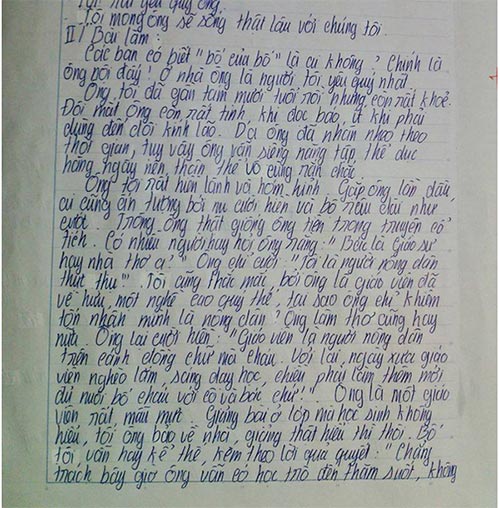 Tôi rất yêu quý ông.
Tôi mong ông sẽ sống thật lâu với chúng tôi.
II / Bài làm:
Các bạn có biết "bố của bố" là ai không? Chính là
ông nội đấy! Ở nhà ông là người tôi yêu quý nhất
Ông tôi đã gần tám mươi tuổi rồi nhưng còn rất khoẻ.
Đôi mắt ông còn rất tinh, khi đọc báo, ít khi phải
dùng đến đôi kính lão. Da ông đã nhăn nheo theo
thời gian, tuy vậy ông vẫn siêng năng tập thể dục
hằng ngày nên thân thể vô cùng rắn chắc.
Ông tôi rất hiền lành và hóm hỉnh. Gặp ông lần đầu,
ai cũng ấn tượng bởi nụ cười hiền và bộ râu dài như
cước. Trông ông thật giống ông tiên trong truyện cổ
tích. Có nhiều người hay hỏi ông rằng: "Bác là giáo sư
hay nhà thơ ạ?" Ông chỉ cười: "Tôi là người nông dân
thực thụ!". Tôi cũng thắc mắc, bởi ông là giáo viên đã
về hưu, một nghề cao quý thế, tại sao ông chỉ khiêm
tốn nhận mình là nông dân? Ông làm thơ cũng hay
nữa. Ông lại cười hiền: "Giáo viên là người nông dân
trên cánh đồng chữ mà cháu. Với lại, ngày xưa giáo
viên nghèo lắm, sáng dạy học, chiều phải làm thêm mới
đủ nuôi bố cháu với cô và bác chứ!". Ông là một giáo
viên rất mẫu mực. Giảng bài ở lớp mà học sinh không
hiểu, tối ông bảo về nhà, giảng thật hiểu thì thôi. Bố
tôi vẫn hay kể thế, kèm theo lời quả quyết: "Chẳng
trách bây giờ ông vẫn có học trò đến thăm suốt, không